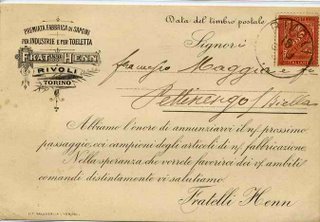 Data del timbro postale
PREMIATA FABBRICA DI SAPONI
PER INDUSTRIE E PER TOELETTA
FRAT.LLI HENN
RIVOLI
TORINO
Signori
Francesco Maggia e
Pettinengo (Biella
Abbiamo l'onore di annunziarvi il n/ prossimo
passaggio, coi campioni degli articoli di n/ fabbricazione
Nella speranza che vorrete favorirci dei v/ ambiti
comandi distintamente vi salutiamo.
Fratelli Henn